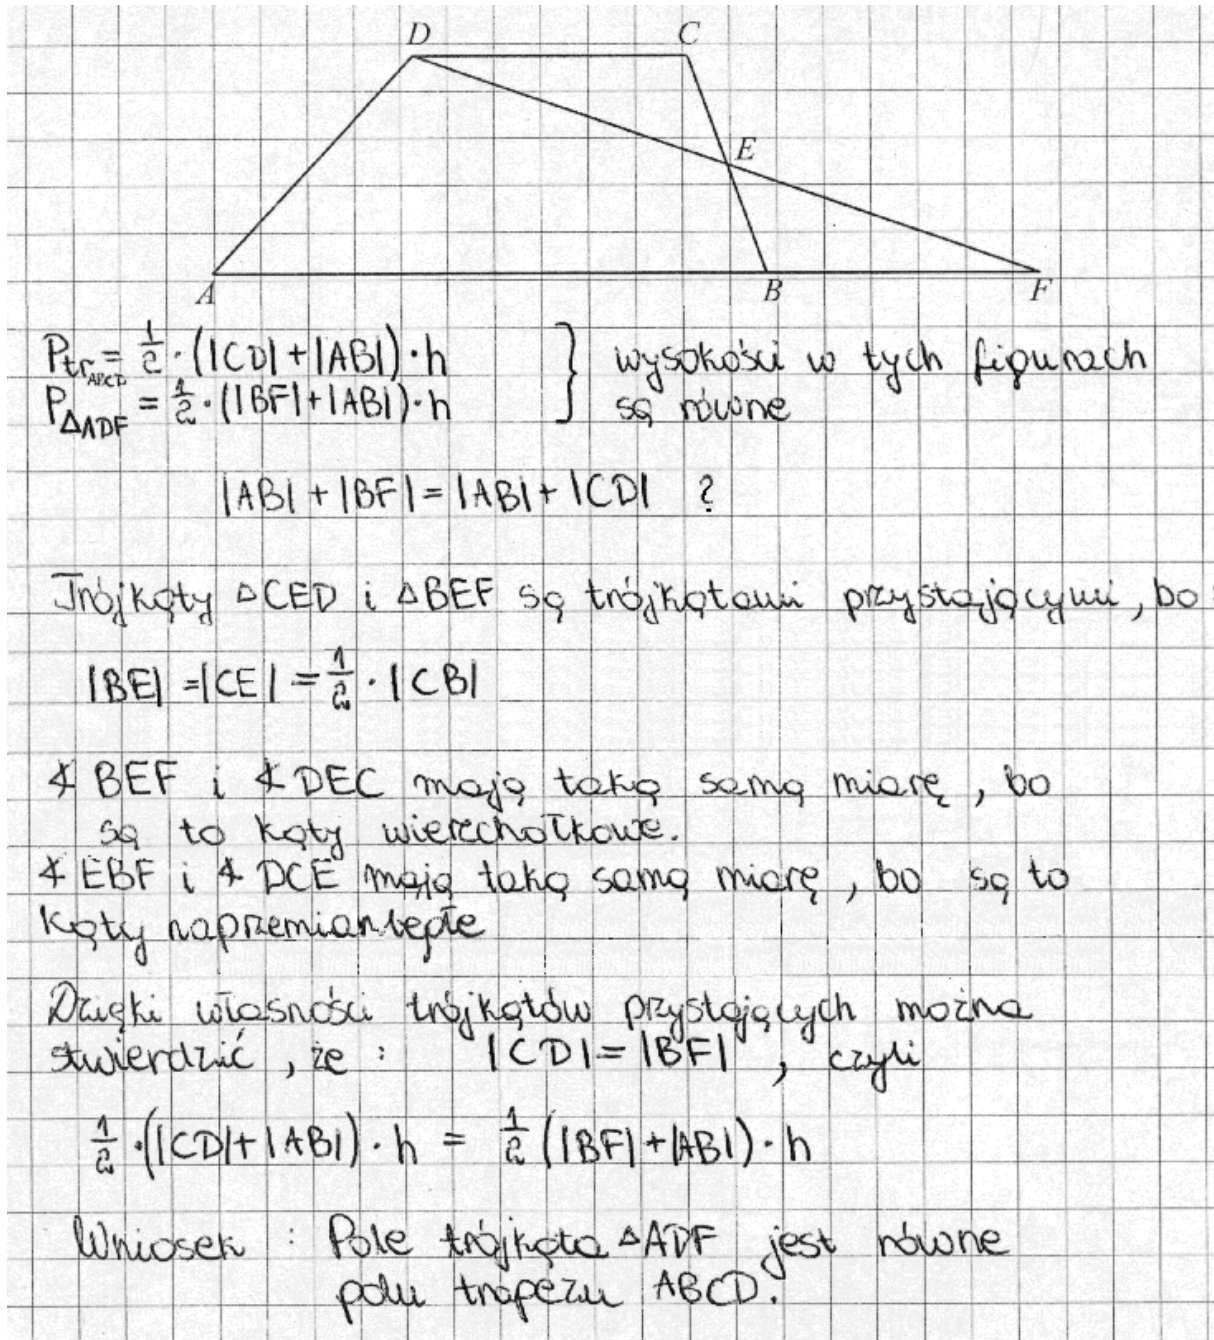 D C
E
A B F
P_{tr_{ABCD}} = \frac{1}{2} \cdot (|CD| + |AB|) \cdot h } wysokości w tych figurach
P_{\Delta ADF} = \frac{1}{2} \cdot (|BF| + |AB|) \cdot h są równe
|AB| + |BF| = |AB| + |CD| ?
Trójkąty △CED i △BEF są trójkątami przystającymi, bo:
|BE| = |CE| = \frac{1}{2} \cdot |CB|
∢ BEF i ∢ DEC mają taką samą miarę, bo
są to kąty wierzchołkowe.
∢ EBF i ∢ DCE mają taką samą miarę, bo są to
kąty naprzemianległe
Dzięki własności trójkątów przystających można
stwierdzić, że: |CD| = |BF|, czyli
\frac{1}{2} \cdot (|CD| + |AB|) \cdot h = \frac{1}{2} (|BF| + |AB|) \cdot h
Wniosek: Pole trójkąta △ADF jest równe
polu trapezu ABCD.